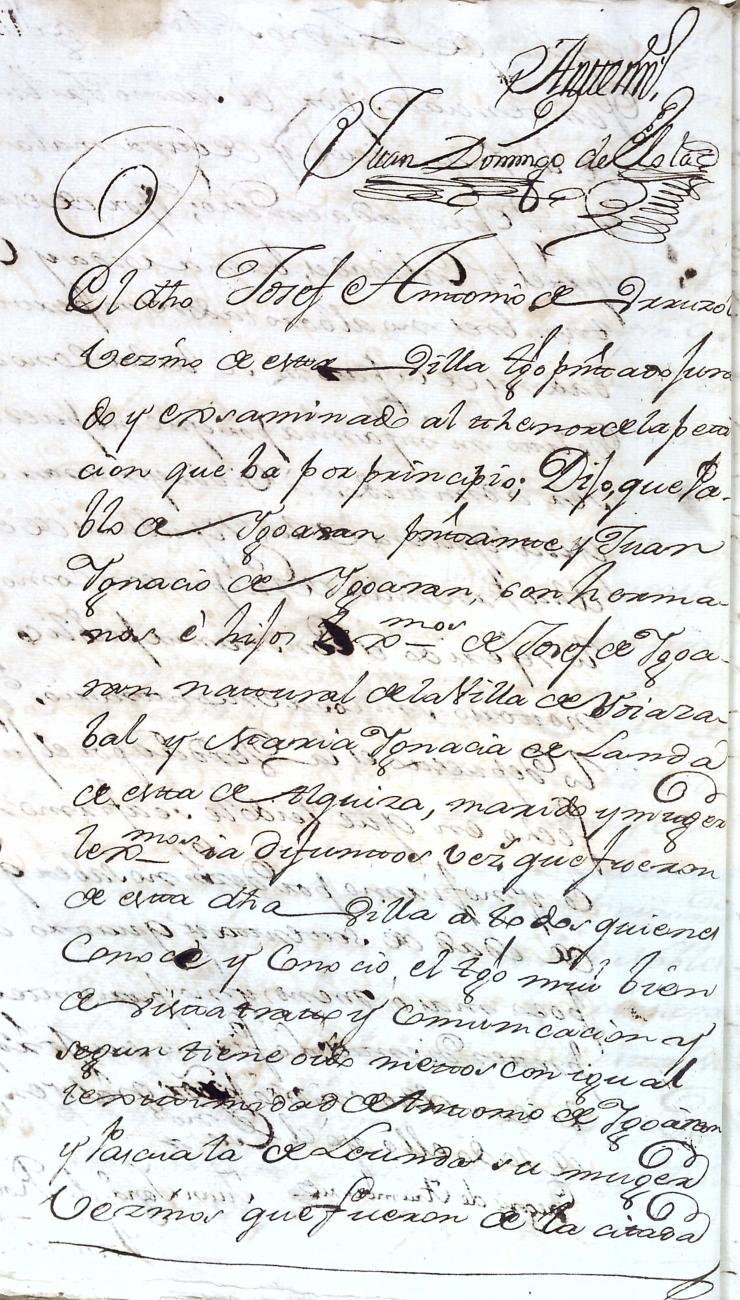 Ante mi,
Juan Domingo de
El dho Josef Antonio de
Vezino de esta Villa tgo pntado jura
do y exsaminado al thenor de la peti
cion que bá por principio; Dijo, que Pa-
blo de Ygoaran pntante y Juan
Ygnacio de Ygoaran, son herma-
nos é hijos lexmos de Josef de Ygoa-
ran natural de la Villa de Ydiaza-
bal y Maria Ygnacia de Landa
de esta de Alquiza, marido y muger
lexmos ia difuntos vezs que fueron
de esta dha Villa á todos quienes
Conoce y Conoció el tgo mui bien
de vista trato y comunicacion y
segun tiene oido nietos con igual
lexitimidad de Antonio de Ygoaran
y Pascuala de su muger
Vezinos que fueron de la citada